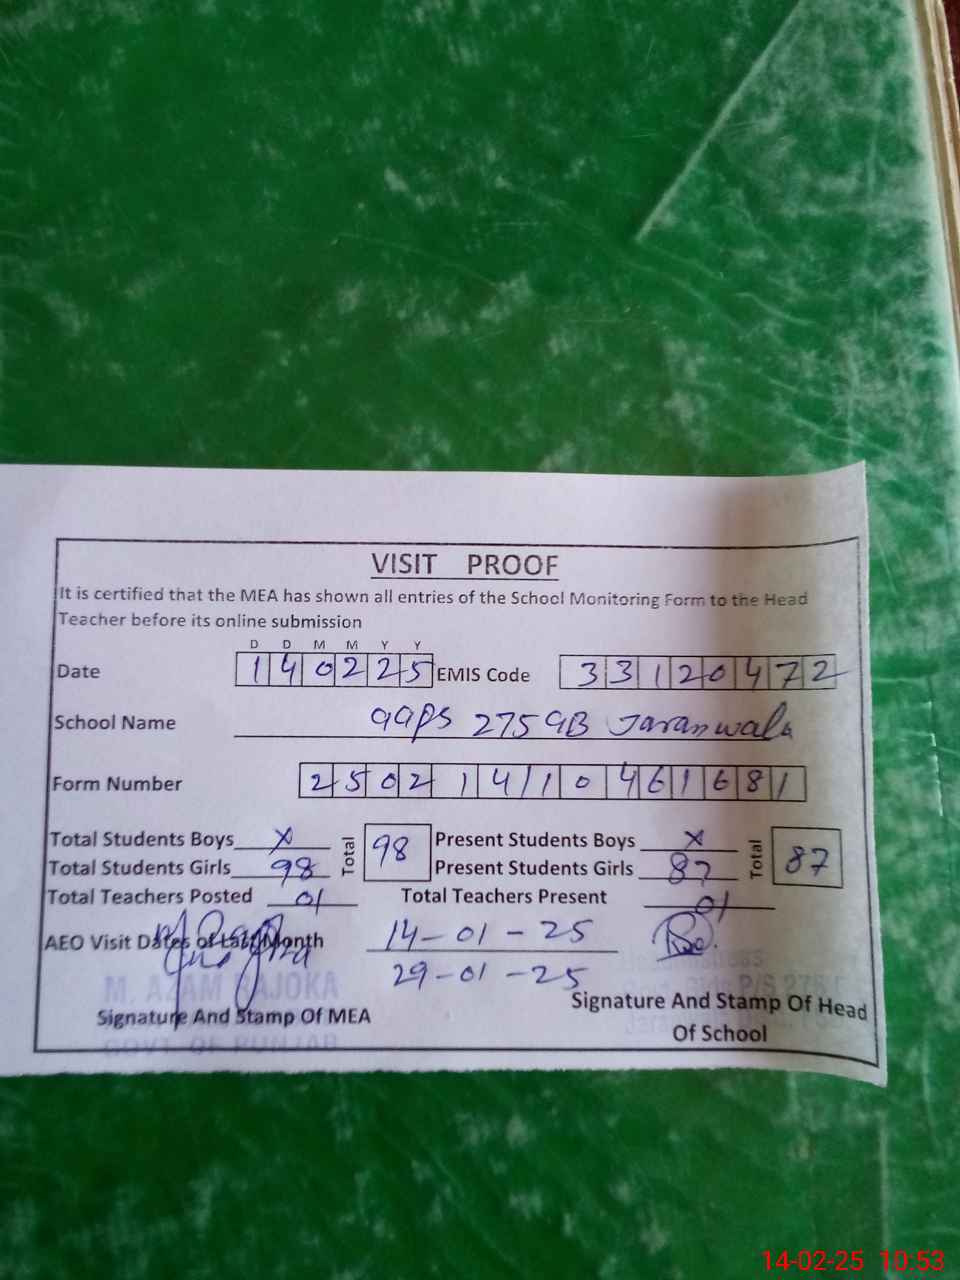 VISIT PROOF
It is certified that the MEA has shown all entries of the School Monitoring Form to the Head
Teacher before its online submission
D D M M Y Y
Date 140225 EMIS Code 33120472
School Name GGPS 275 GB Jaranwala
Form Number 25021410461681
Total Students Boys x Total 98 Present Students Boys x Total 87
Total Students Girls 98 Present Students Girls 87
Total Teachers Posted 01 Total Teachers Present 01
AEO Visit Dates of Last Month 14-01-25
29-01-25
M. AZAM RAJOKA
Signature And Stamp Of MEA
GOVT. OF PUNJAB
Signature And Stamp Of Head
Of School
14-02-25 10:53